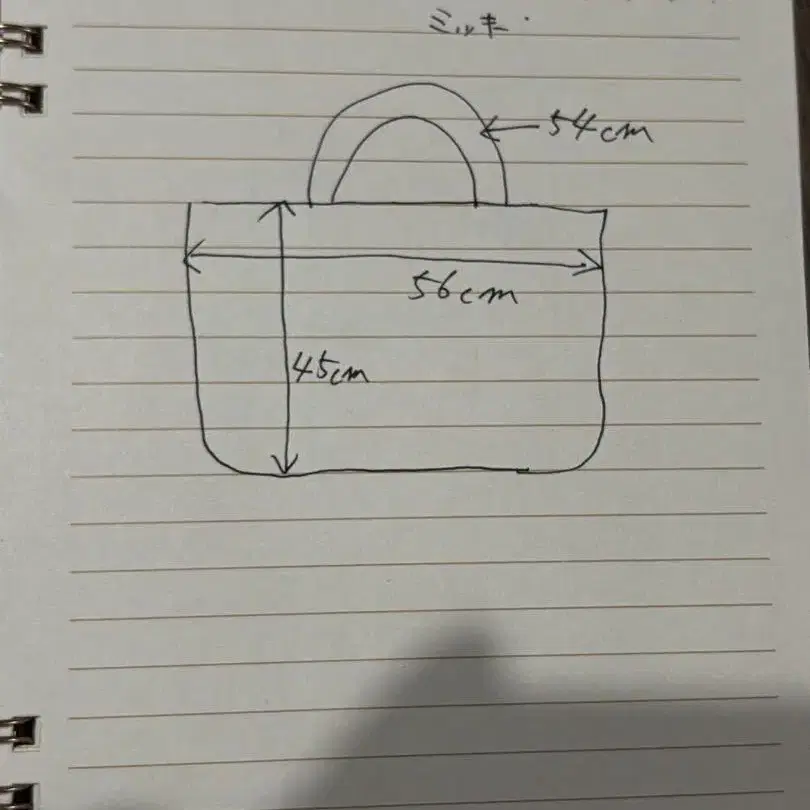 ミッキー
54cm
56cm
45cm